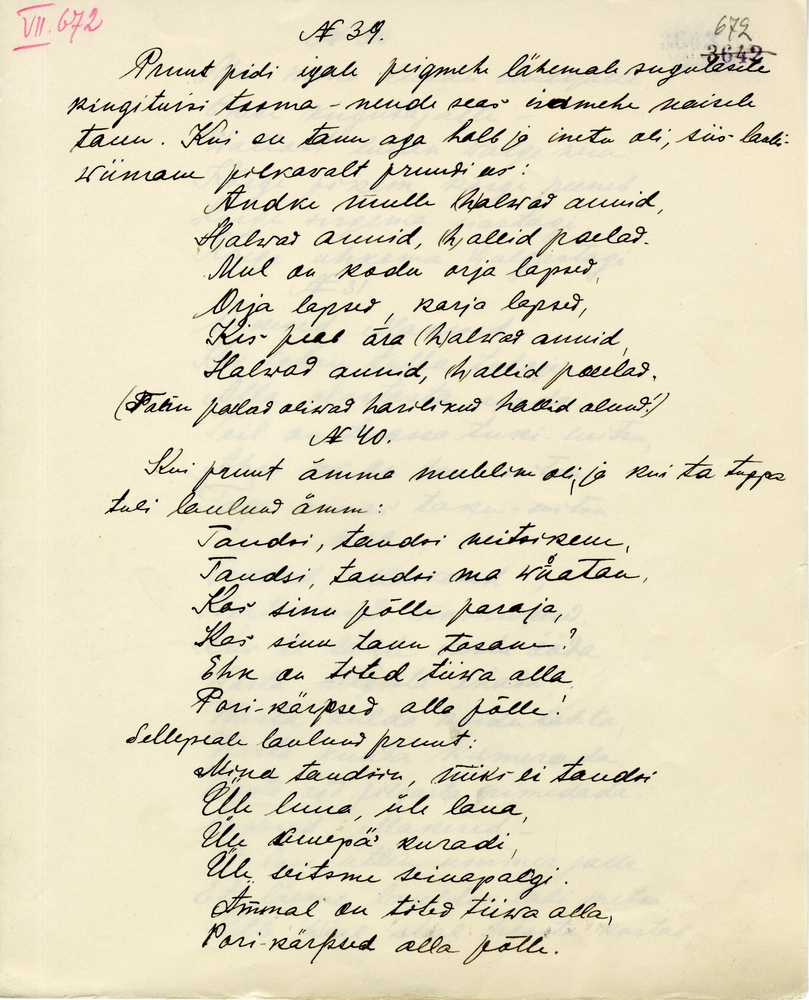 VII. 672
672
3642
№ 39.
Pruut pidi igale peigmehe lähemale sugulasele
kingitusi tooma - nende seas isamehe naisele
tanu. Kui see tanu aga halb ja inetu oli, siis laulis
wiimane pilkavalt pruudi ees:
Andke mulle (h)alwad annid,
Halwad annid, (h)allid paelad.
Mul on kodu orja lapsed,
Orja lapsed, karja lapsed,
Kis peab ära (h)alwad annid,
Halwad annid, (h)allid paelad.
(Tanu paelad oliwad harilikud hallid olnud!)
№ 40.
Kui pruut ämma meeleline oli, ja kui ta tuppa
tuli laulnud ämm:
Tandsi, tandsi neitsikene,
Tandsi, tandsi ma wäatan,
Kas sinu põlle paraja,
Kas sinu tanu tasane?
Ehk on tited tiiwa alla
Pori-kärpsed alla põlle!
Sellepeale laulnud pruut:
Mina tandsin, miks ei tandsi
Üle luua, üle laua,
Üle kuradi,
Üle seitsme seinapalgi.
Ämmal on tited tiiwa alla,
Pori-kärpsed alla põlle.